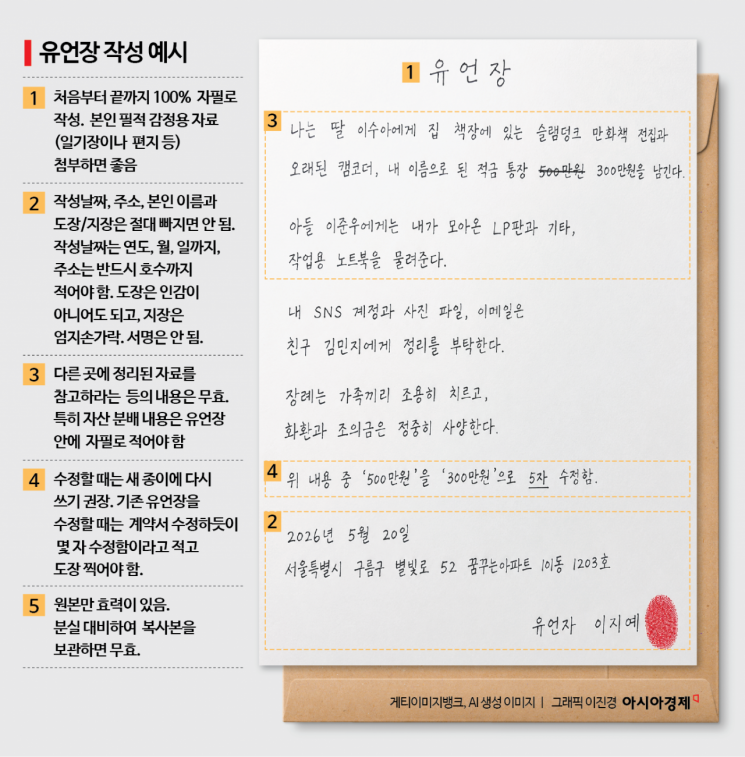 유언장 작성 예시
1 처음부터 끝까지 100% 자필로
작성. 본인 필적 감정용 자료
(일기장이나 편지 등)
첨부하면 좋음
2 작성날짜, 주소, 본인 이름과
도장/지장은 절대 빠지면 안 됨.
작성날짜는 연도, 월, 일까지,
주소는 반드시 호수까지
적어야 함. 도장은 인감이
아니어도 되고, 지장은
엄지손가락. 서명은 안 됨.
3 다른 곳에 정리된 자료를
참고하라는 등의 내용은 무효.
특히 자산 분배 내용은 유언장
안에 자필로 적어야 함
4 수정할 때는 새 종이에 다시
쓰기 권장. 기존 유언장을
수정할 때는 계약서 수정하듯이
몇 자 수정함이라고 적고
도장 찍어야 함.
5 원본만 효력이 있음.
분실 대비하여 복사본을
보관하면 무효.
1 유언장
3
나는 딸 이수아에게 집 책장에 있는 슬램덩크 만화책 전집과
오래된 캠코더, 내 이름으로 된 적금 통장 500만원 300만원을 남긴다.
아들 이준우에게는 내가 모아온 LP판과 기타,
작업용 노트북을 물려준다.
내 SNS 계정과 사진 파일, 이메일은
친구 김민지에게 정리를 부탁한다.
장례는 가족끼리 조용히 치르고,
화환과 조의금은 정중히 사양한다.
4 위 내용 중 '500만원'을 '300만원'으로 5자 수정함.
2
2026년 5월 20일
서울특별시 구름구 별빛로 52 꿈꾸는아파트 101동 1203호
유언자 이지예
게티이미지뱅크, AI 생성 이미지 | 그래픽 이진경 아시아경제